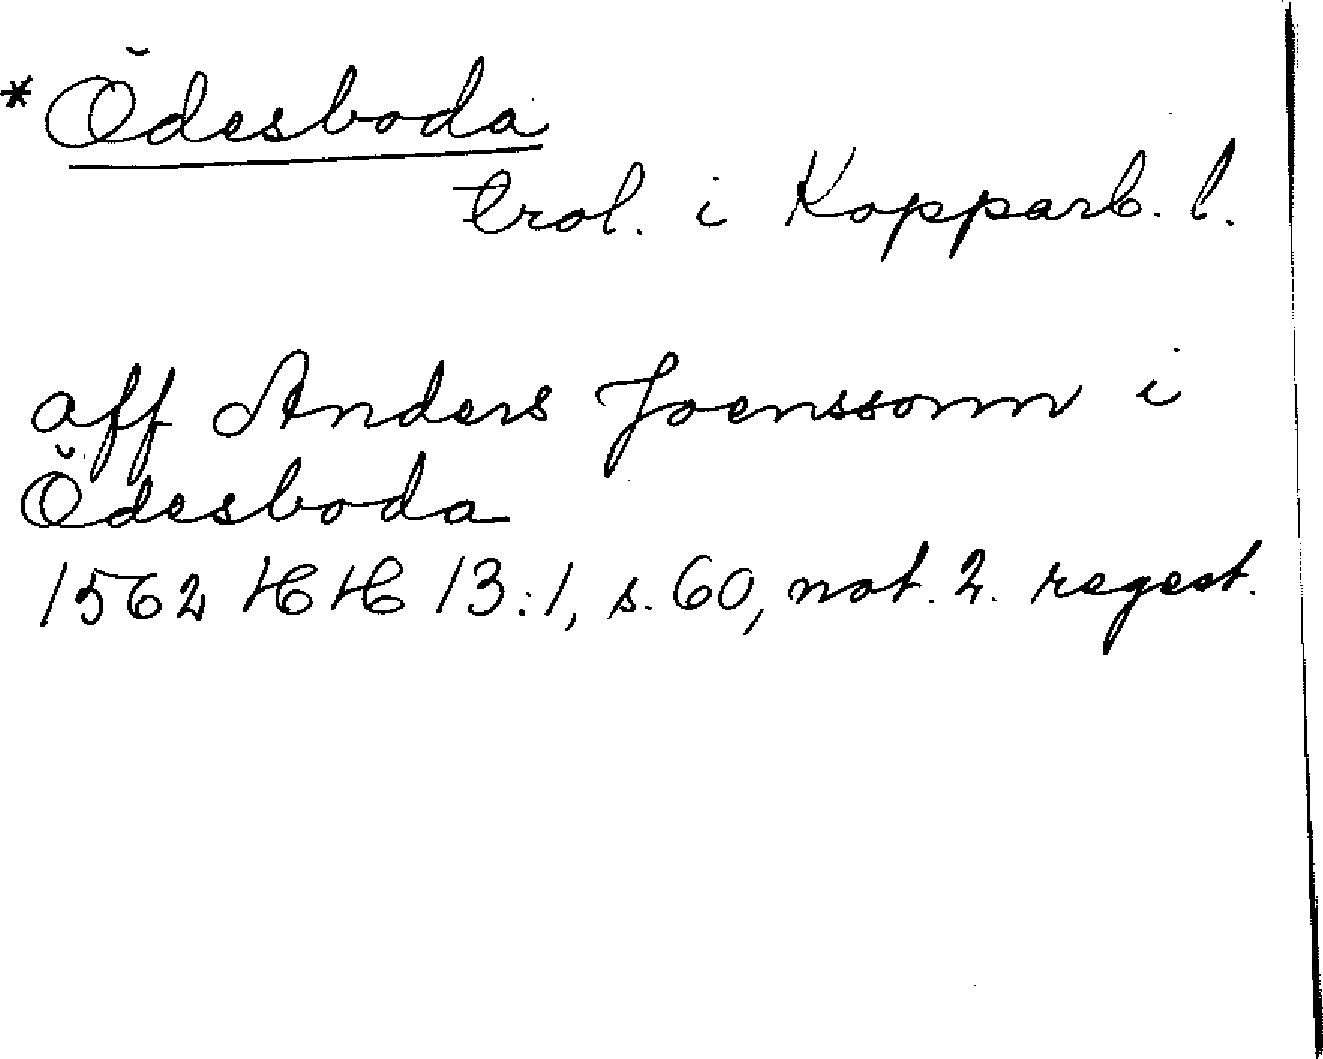 *Ödesboda
trol. i Kopparb. l.
aff Anders Joenssonn i
Ödesboda
1562 HH 13:1, s. 60, not. 2. regest.